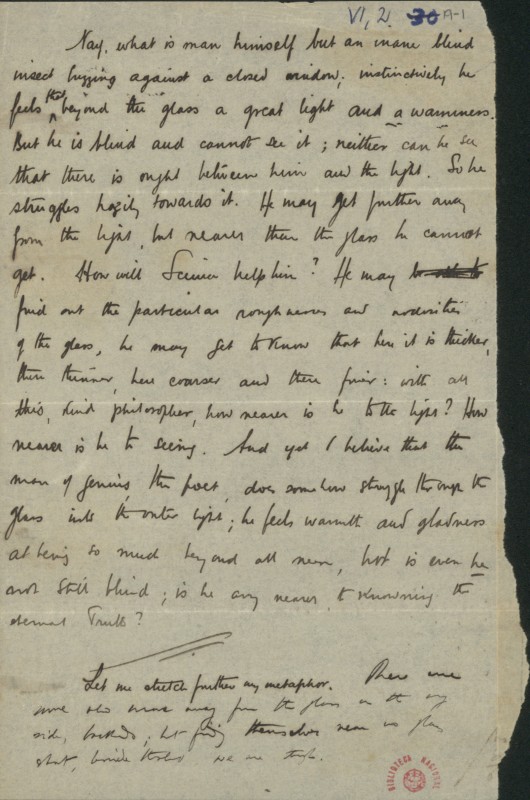 VI, 2. 30 A-1
Nay, what is man himself but an inane blind
insect buzzing against a closed window; instinctively he
feels that beyond the glass a great light and a warmness.
But he is blind and cannot see it; neither can he see
that there is ought between him and the light. So he
struggles hazily towards it. He may get further away
from the light, but nearer than the glass he cannot
get. How will Science help him? He may
find out the particular roughnesses and nodosities
of the glass, he may get to know that here it is thicker,
there thinner, here coarser and there finer: with all
this, kind philosopher, how nearer is he to the light? How
nearer is he to seeing. And yet I believe that the
man of genius, the poet, does somehow struggle through the
glass into the outer light; he feels warmth and gladness
at being so much beyond all men, but is even he
not still blind; is he any nearer to knowing the
eternal Truth?
Let me stretch further my metaphor. There are
some who move away from the glass on the
side, backwards; but themselves near no glass
we are
BIBLIOTECA NACIONAL